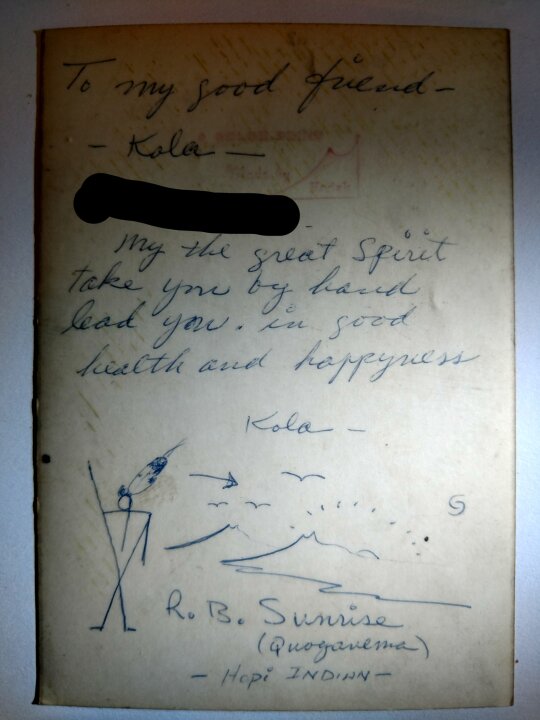 To my good friend-
- Kola -
My the great Spirit
take you by hand
lead you. in good
health and happyness
Kola -
R. B. Sunrise
(Quoganema)
- Hopi INDIAN -